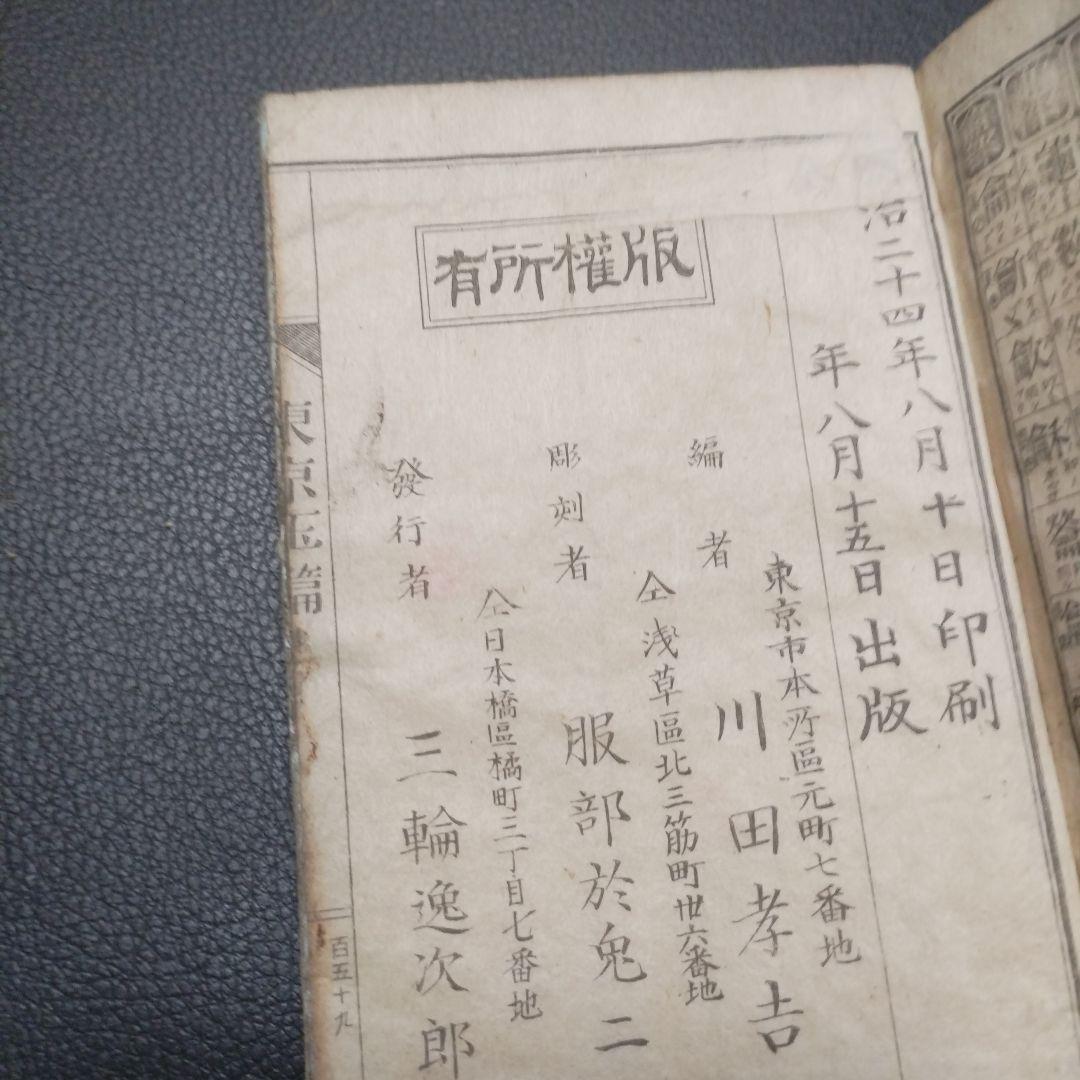 治二十四年八月十日印刷
年八月十五日出版
版權所有
東京市本所區元町七番地
編者
川田孝吉
仝浅草區北三筋町卅六番地
彫刻者
服部於兔二
仝日本橋區橘町三丁目七番地
發行者
三輪逸次郎
東京玉篇
百五十九